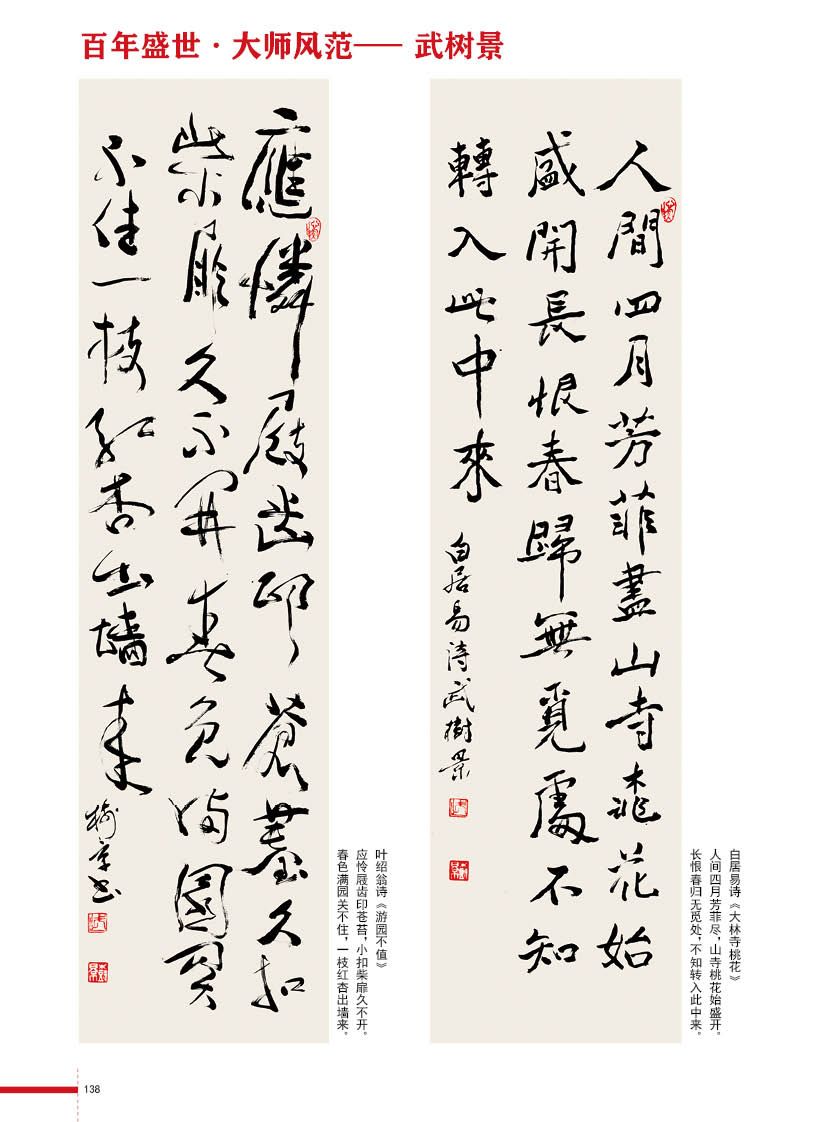 百年盛世·大师风范—— 武树景
人間四月芳菲盡山寺桃花始
盛開長恨春歸無覓處不知
轉入此中來
白居易詩武樹景
白居易诗《大林寺桃花》
人间四月芳菲尽，山寺桃花始盛开。
长恨春归无觅处，不知转入此中来。
應憐屐齒印蒼薹久扣
柴扉久不開春色滿園関
不住一枝紅杏出墙來
樹景书
叶绍翁诗《游园不值》
应怜屐齿印苍苔，小扣柴扉久不开。
春色满园关不住，一枝红杏出墙来。
138